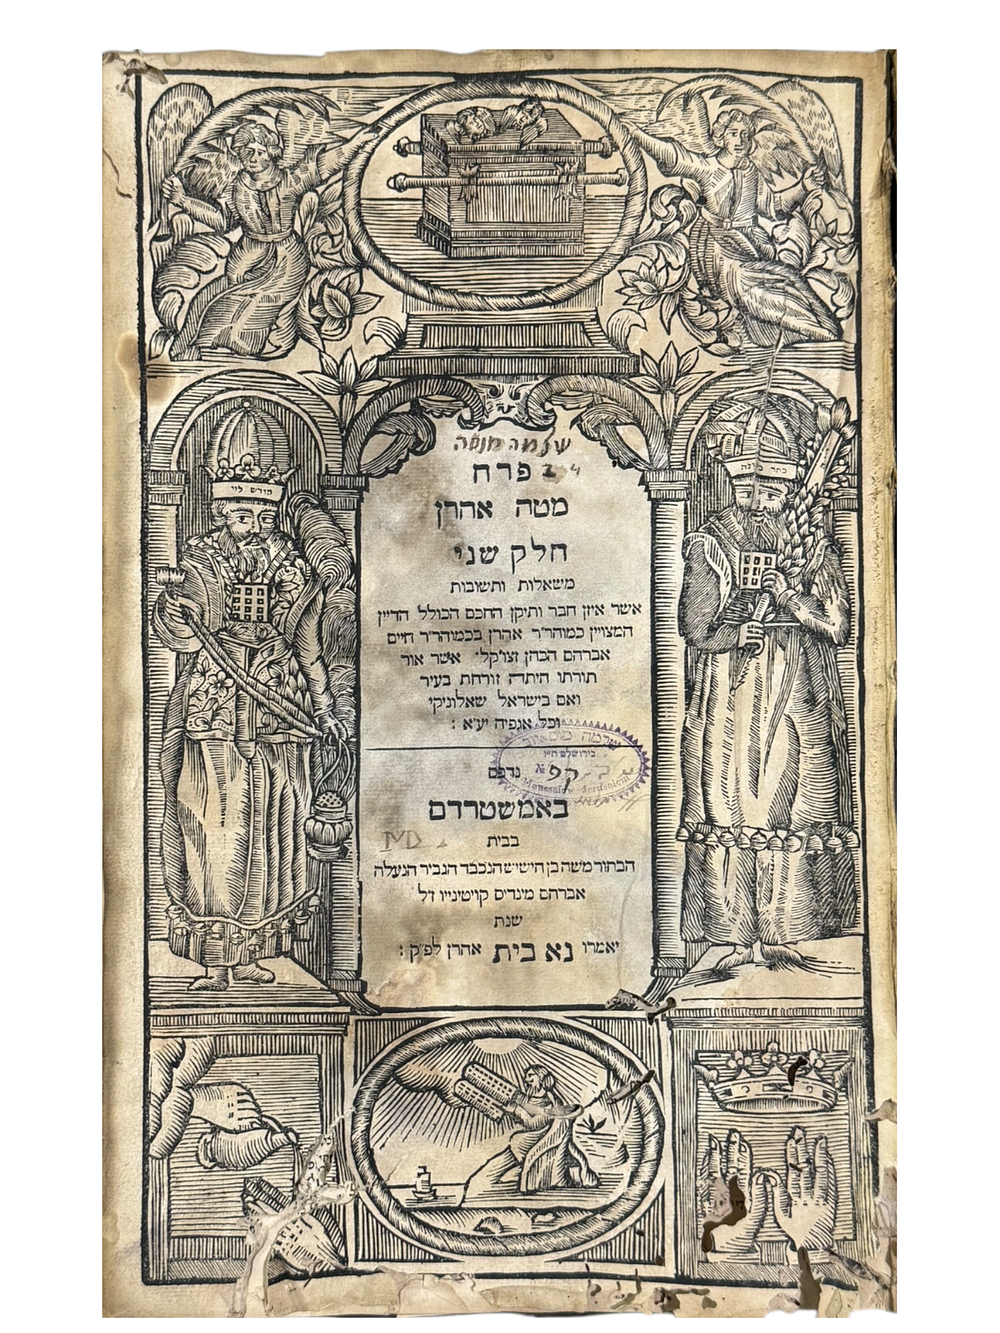 שלמה מוסה
פרח
מטה אהרן
חלק שני
משאלות ותשובות
אשר איזן חבר ותיקן החכם הכולל הדיין
המצויין כמוהר״ר אהרן בכמוהר״ר חיים
אברהם הכהן זצוקל׳ אשר אור
תורתו היתה זורחת בעיר
ואם בישראל שאלוניקי
וכל אגפיה יע״א :
נדפס
באמשטרדם
בבית
הבחור משה בן הישיש הנכבד הגביר הנעלה
אברהם מינדיס קויטינייו דל
שנת
יאמרו נא בית אהרן לפ״ק :
קודש ליי
כתר כהונה
בירושלם
Moussaieff Jerusalem